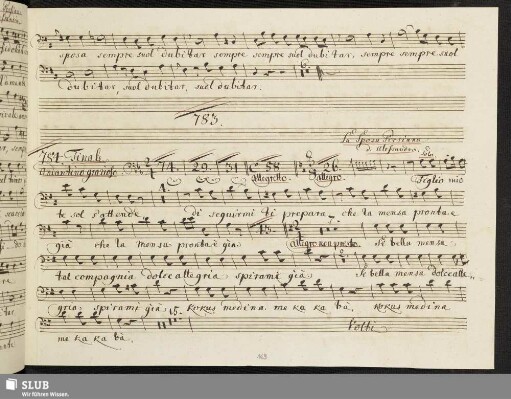 sposa sempre suol dubitar sempre sempre suol dubitar, sempre sempre suol
dubitar, suol dubitar, suol dubitar.
783.
La Sposa Persiana
d. Alessandro.
784 Finale
Andantino grazioso
14. 29 31 58 26
allegretto. allegro.
Solo
Figlia mia
te sol s'attende di seguirmi ti prepara che la mensa pronta è
già che la mensa pronta è già allegro non presto. Se bella mensa
tal compagnia dolce allegria spirami già Se bella mensa dolce alle
gria spirami già kokus medina me ka ka bà, kokus medina
15.
me ka ka bà. Volti
163
SLUB
Wir führen Wissen.